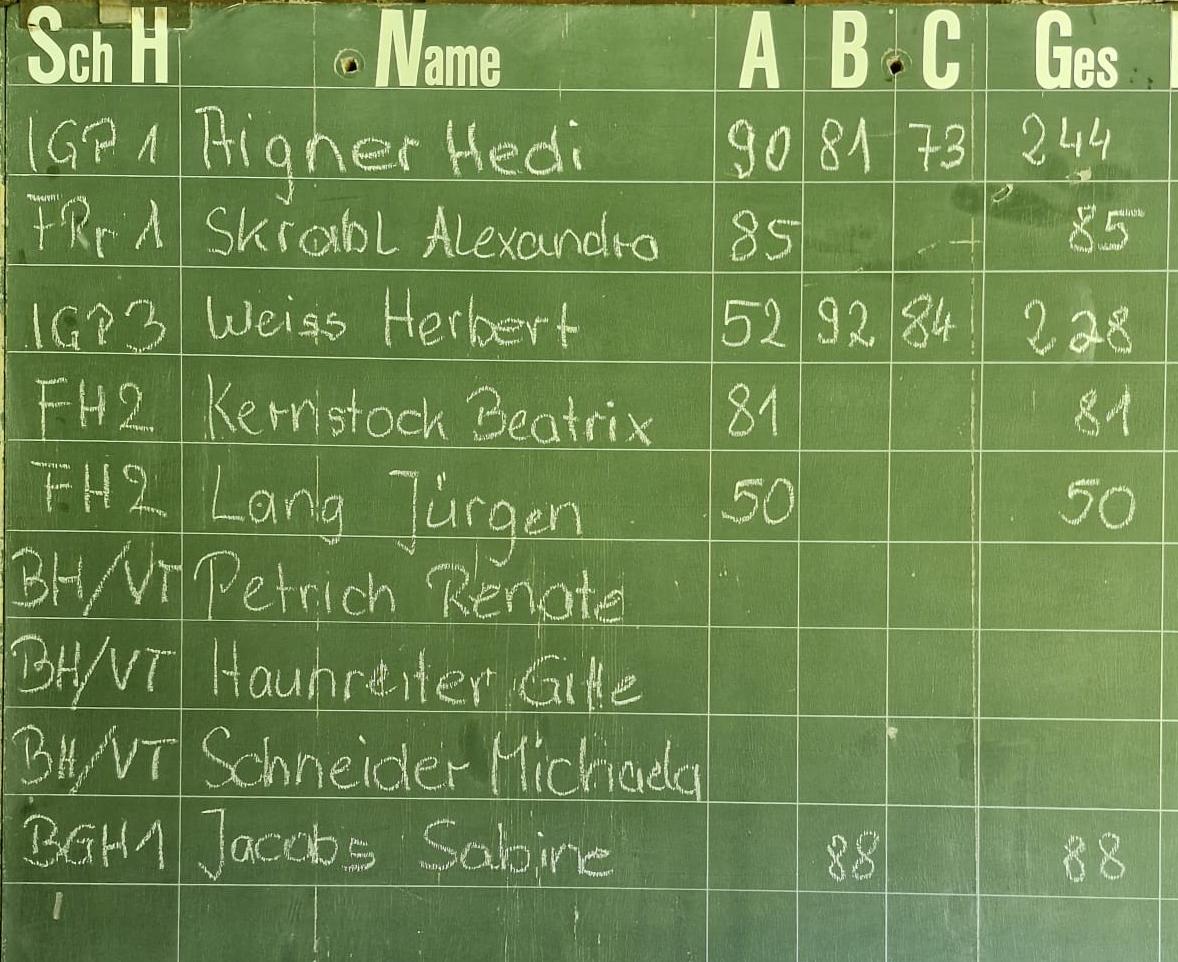 Sch H Name A B C Ges
IGP 1 Aigner Hedi 90 81 73 244
FPr 1 Skrabl Alexandra 85 85
IGP3 Weiss Herbert 52 92 84 228
FH2 Kernstock Beatrix 81 81
FH2 Lang Jürgen 50 50
BH/VT Petrich Renate
BH/VT Haunreiter Gitte
BH/VT Schneider Michaela
BGH1 Jacobs Sabine 88 88